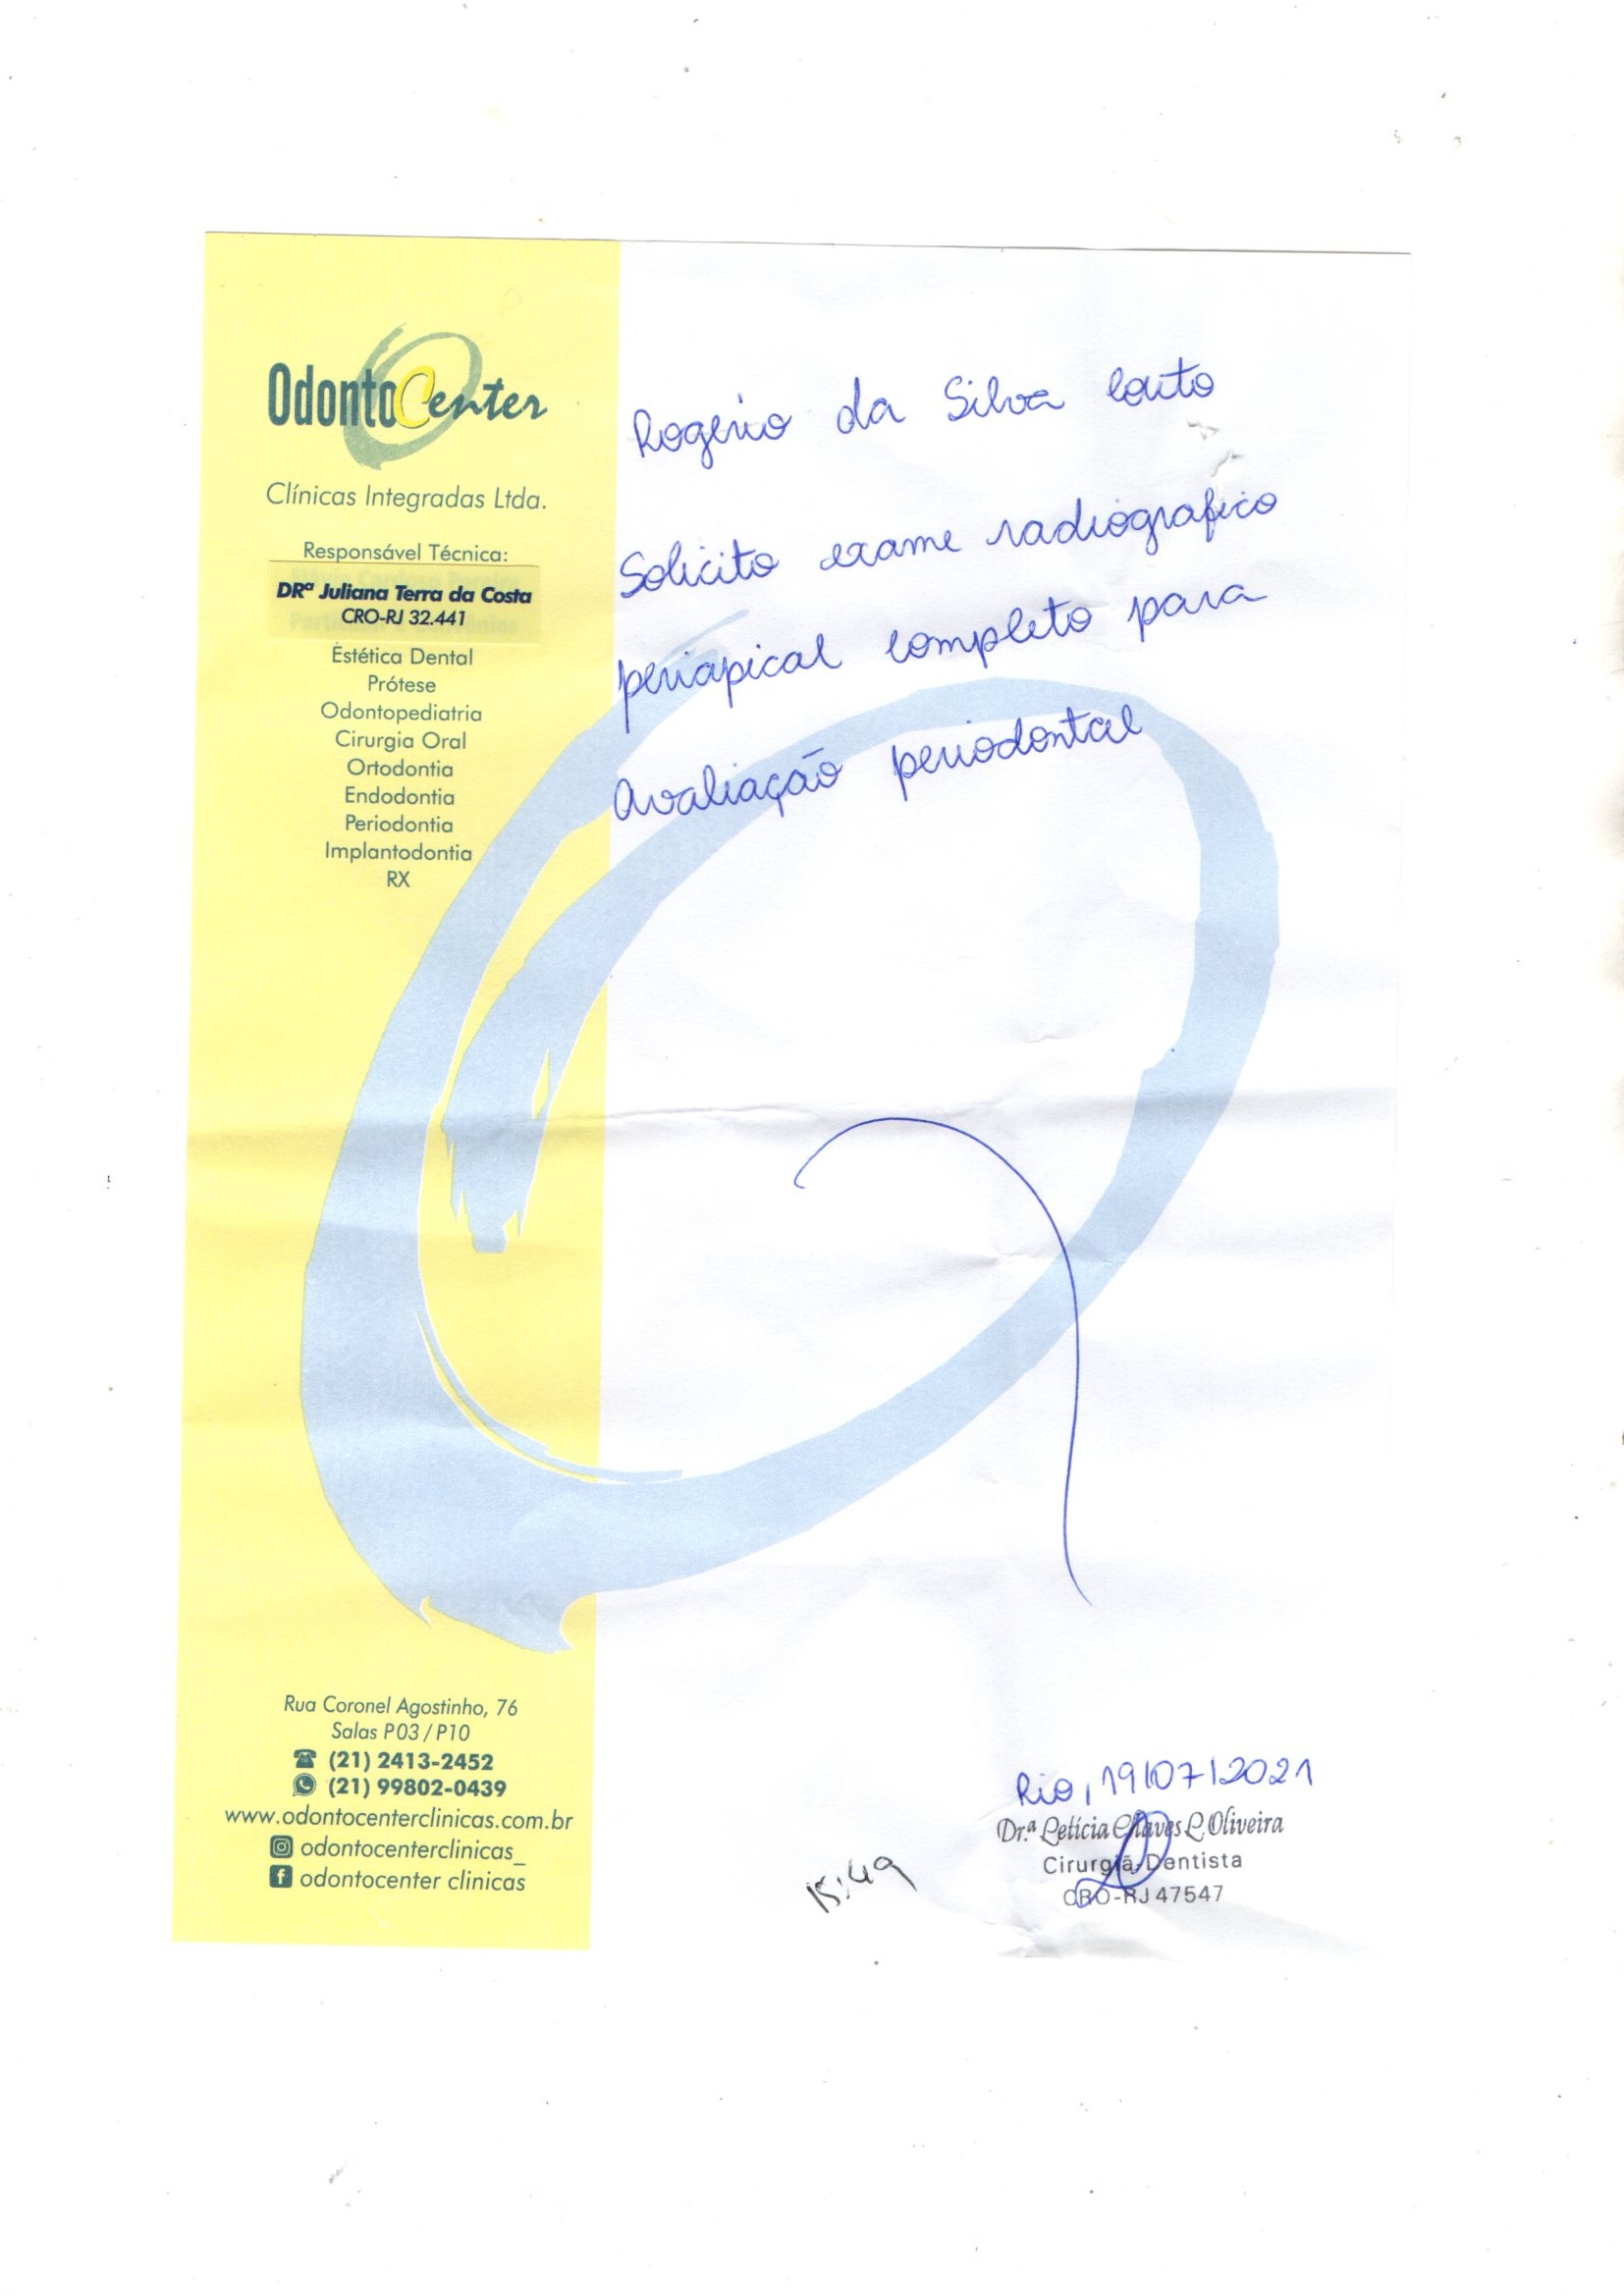 OdontoCenter
Clínicas Integradas Ltda.
Responsável Técnica:
DRª Juliana Terra da Costa
CRO-RJ 32.441
Estética Dental
Prótese
Odontopediatria
Cirurgia Oral
Ortodontia
Endodontia
Periodontia
Implantodontia
RX
Rogério da Silva Couto
Solicito exame radiografico
periapical completo para
Avaliação periodontal
Rua Coronel Agostinho, 76
Salas P03 / P10
(21) 2413-2452
(21) 99802-0439
www.odontocenterclinicas.com.br
odontocenterclinicas_
odontocenter clinicas
Rio, 19/07/2021
Dr.ª Letícia Chaves L. Oliveira
Cirurgiã-Dentista
CRO-RJ 47547
15:49